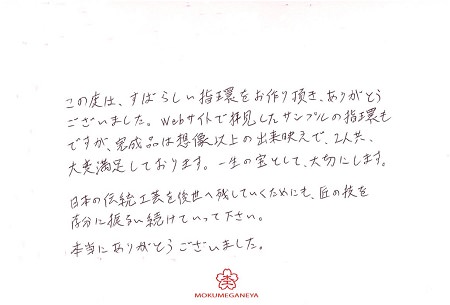 この度は、すばらしい指環をお作り頂き、ありがとう
ございました。Webサイトで拝見したサンプルの指環も
ですが、完成品は想像以上の出来映えで、2人共、
大変満足しております。一生の宝として、大切にします。
日本の伝統工芸を後世へ残していくためにも、匠の技を
存分に振るい続けていって下さい。
本当にありがとうございました。
MOKUMEGANEYA